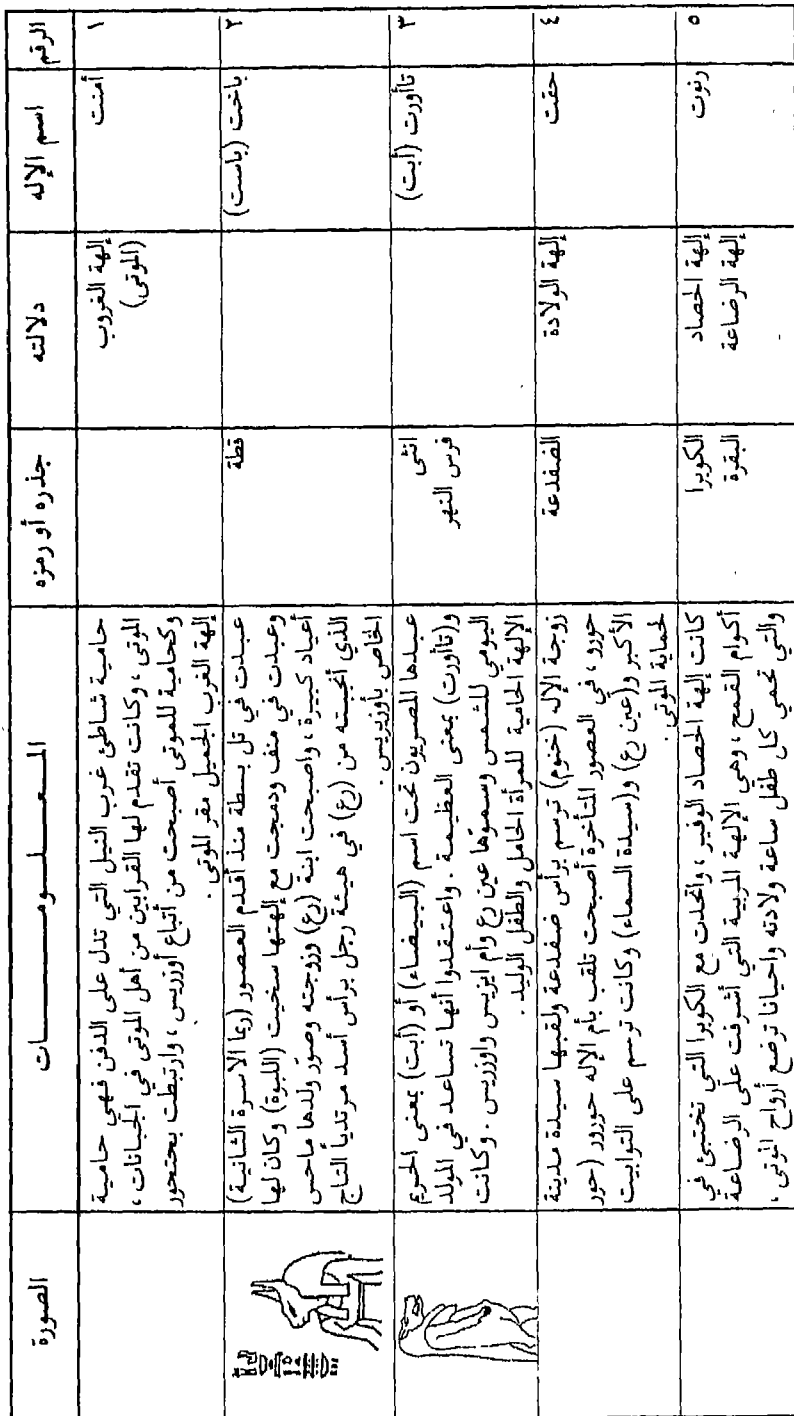 الرقم
اسم الإله
دلالته
جذره أو رمزه
المـعـلـومـــات
الصورة
١
أمنت
إلهة الغروب
(الموتى)
حامية شاطئ غرب النيل التي تدل على الدفن فهي حامية
الموتى، وكانت تقدم لها القرابين من أهل الموتى في الجبانات،
وكحامية للموتى أصبحت من أتباع أوزريس، وارتبطت بحتحور
إلهة الغرب الجميل مقر الموتى.
٢
باخت (باست)
قطة
عبدت في تل بسطة منذ أقدم العصور (ربما الاسرة الثانية)
وعبدت في منف ودمجت مع إلهتها سخيت (اللبوة) وكان لها
أعياد كبيرة، واصبحت ابنة (رع) وزوجته وصوّر ولدها ماحس
الذي أنجبته من (رع) في هيئة رجل برأس أسد مرتدياً التاج
الخاص بأوزيريس.
٣
تاأورت (أبت)
انثى
فرس النهر
عبدها المصريون تحت اسم (البيضاء) أو (أبت) بمعنى الحريم
و(تاأورت) بمعنى العظيمة. واعتقدوا أنها تساعد في المولد
اليومي للشمس وسموّها عين رع وأم ايزيس واوزريس. وكانت
الإلهة الحامية للمرأة الحامل والطفل الوليد.
٤
حقت
إلهة الولادة
الضفدعة
زوجة الإله (خنوم) ترسم برأس ضفدعة ولقبها سيدة مدينة
حورو، في العصور المتأخرة أصبحت تلقب بأم الإله حورور (حور
الأكبر و(عين رع) و(سيدة السماء) وكانت ترسم على التوابيت
لحماية الموتى.
٥
رنوت
إلهة الحصاد
إلهة الرضاعة
الكوبرا
البقرة
كانت إلهة الحصاد الوفير، واتحدت مع الكوبرا التي تختبئ في
أكوام القمح، وهي الإلهة المربية التي أشرفت على الرضاعة
والتي تحمي كل طفل ساعة ولادته واحيانا ترضع أرواح الموتى،